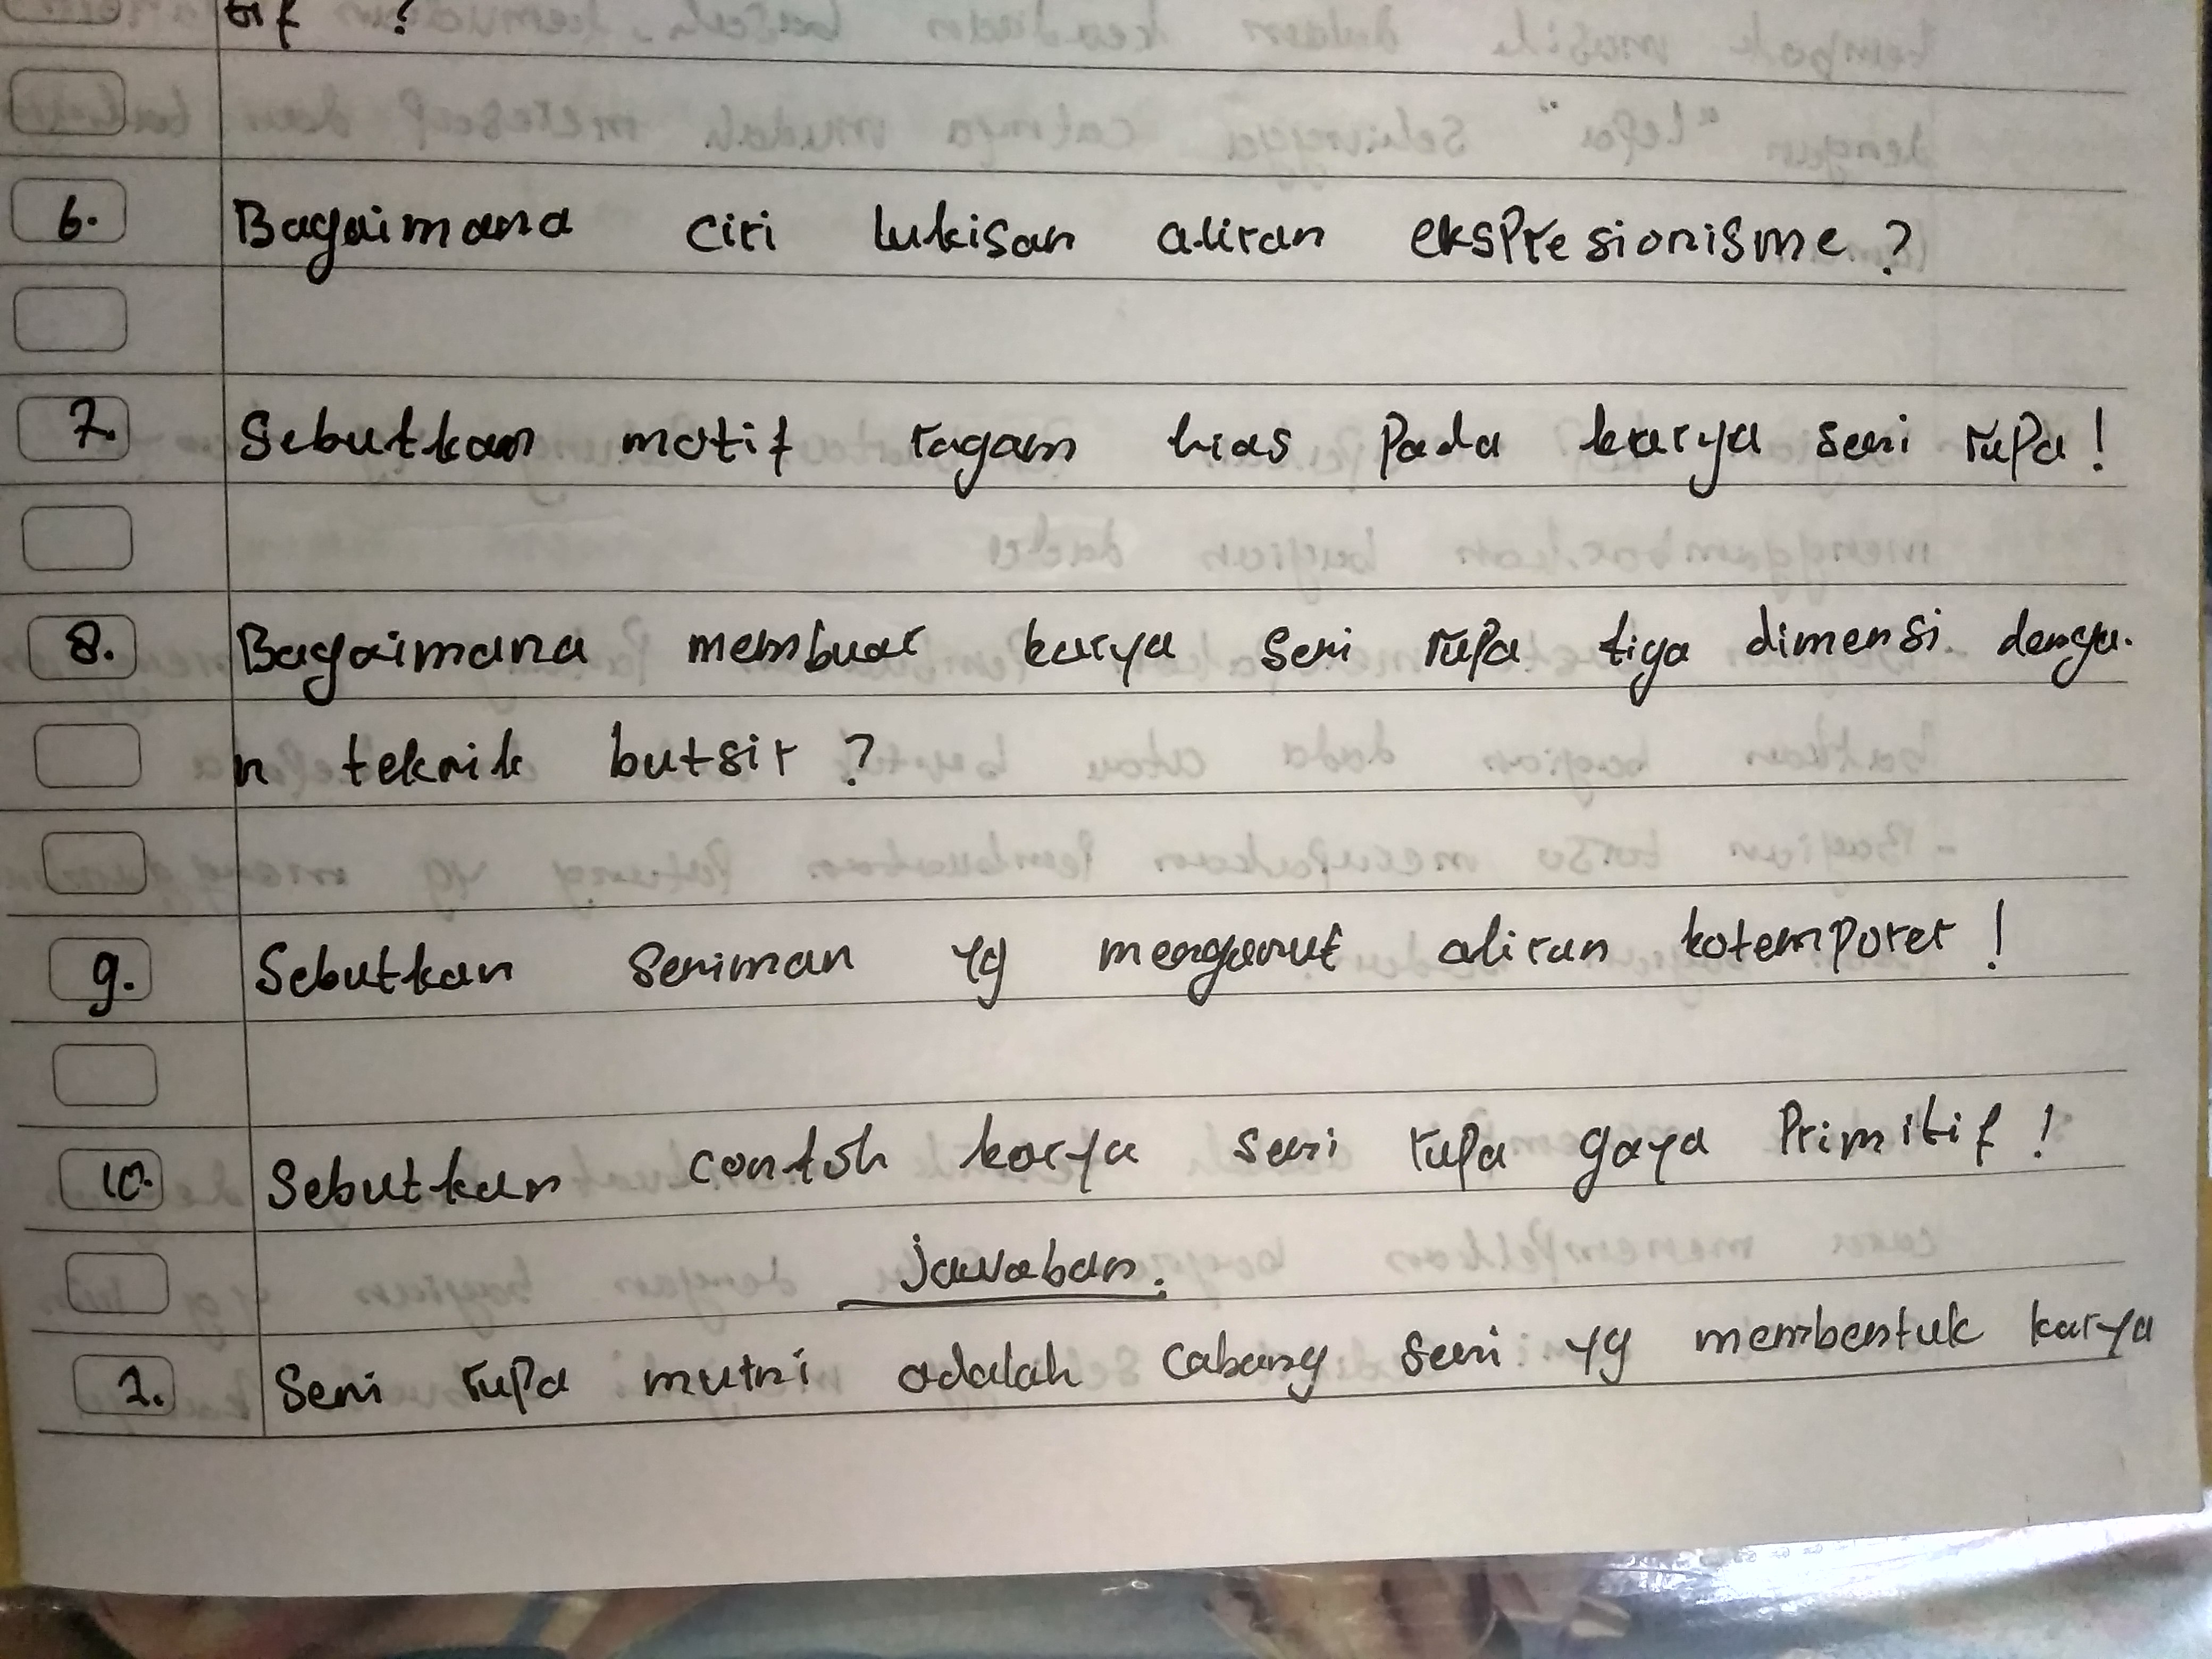 tif ?
6. Bagaimana ciri lukisan aliran ekspresionisme ?
7. Sebutkan motif ragam hias pada karya seni rupa !
8. Bagaimana membuat karya seni rupa tiga dimensi denga-
n teknik butsir ?
9. Sebutkan seniman yg menganut aliran kotemporer !
10. Sebutkan contoh karya seni rupa gaya Primitif !
jawaban.
1. Seni rupa murni adalah cabang seni yg membentuk karya